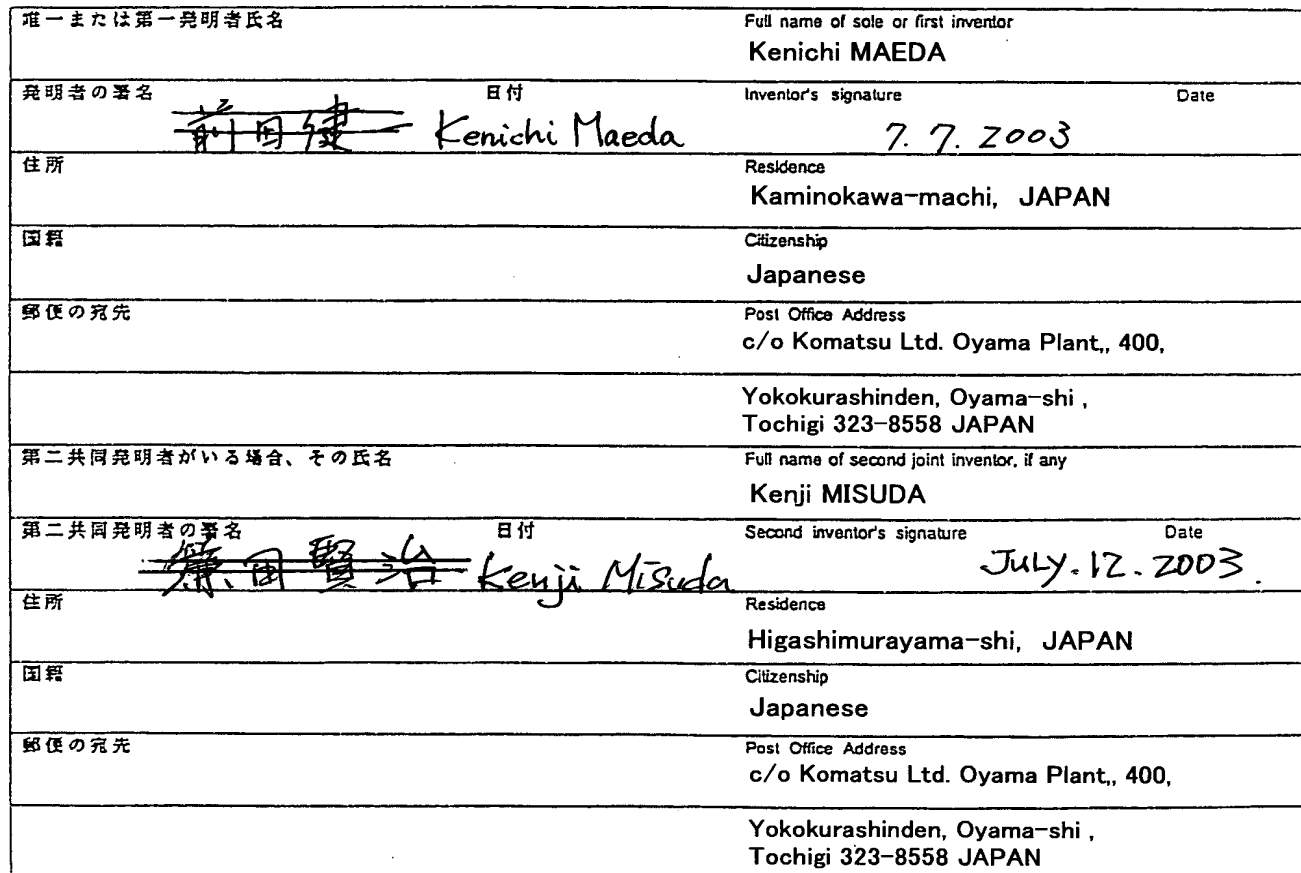 唯一または第一発明者氏名
Full name of sole or first inventor
Kenichi MAEDA
発明者の署名 日付
Inventor's signature Date
前田健一 Kenichi Maeda
7. 7. 2003
住所
Residence
Kaminokawa-machi, JAPAN
国籍
Citizenship
Japanese
郵便の宛先
Post Office Address
c/o Komatsu Ltd. Oyama Plant,, 400,
Yokokurashinden, Oyama-shi ,
Tochigi 323-8558 JAPAN
第二共同発明者がいる場合、その氏名
Full name of second joint inventor, if any
Kenji MISUDA
第二共同発明者の署名 日付
Second inventor's signature Date
田賢治 Kenji Misuda
JULY. 12. 2003.
住所
Residence
Higashimurayama-shi, JAPAN
国籍
Citizenship
Japanese
郵便の宛先
Post Office Address
c/o Komatsu Ltd. Oyama Plant,, 400,
Yokokurashinden, Oyama-shi ,
Tochigi 323-8558 JAPAN